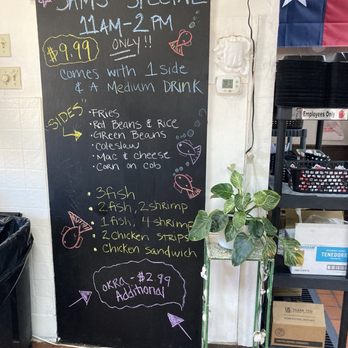 SAMS SPECIAL
11AM-2PM
$9.99
ONLY!!
comes with 1 side
& A Medium DRINK
SIDES
• Fries
• Red Beans & Rice
• Green Beans
• Coleslaw
• Mac & cheese
• Corn on cob
• 3 fish
• 2 fish, 2 shrimp
• 1 fish, 4 shrimp
• 2 Chicken strips
• Chicken sandwich
OKRA - $2.99
Additional
Employees Only
TENEDORES
THANK YOU